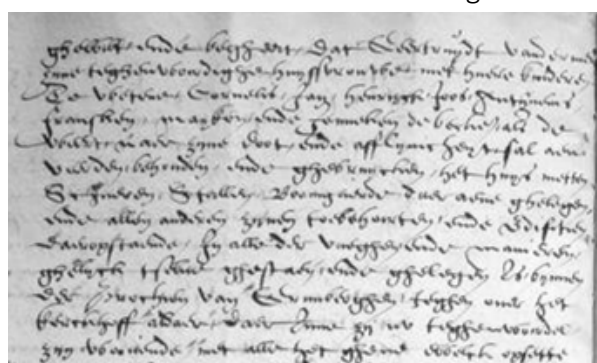 ghewilt ende begheert dat Geertruydt vander
zyne teghenwoordighe huysvrouwe met huere kinderen
Te wetene Cornelis Jan Henrick Joos Anthonis
Fransken ende de als de
naer zyne doot ende afflivicheyt sal aen
behouden ende ghebruycken het huys metten
Schueren Stallen Boomgaerde daer aene ghelegen
ende allen anderen zynen toebehoorten ende Edifitien
daeropstaende In alle der vueghen ende manieren
ghelyck tselve ghestaen ende ghelegen is bynnen
der Prochien van Grimberghen teghen over het
kerckhoff aldaer daer Inne zy nu teghenwoordich
zyn woonende met alle het ghene